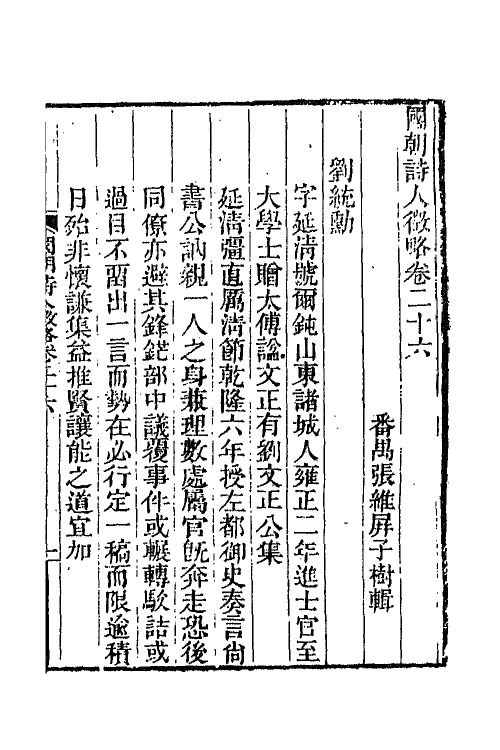 國朝詩人徵略卷二十六
番禺張維屏子樹輯
劉統勳
字延淸號爾鈍山東諸城人雍正二年進士官至
大學士贈太傅諡文正有劉文正公集
延淸彊直厲淸節乾隆六年授左都御史奏言尙
書公訥親一人之身兼理數處屬官旣奔走恐後
同僚亦避其鋒鋩部中議覆事件或輾轉駁詰或
過目不畱出一言而勢在必行定一稿而限逾積
日殆非懷謙集益推賢讓能之道宜加
國朝詩人徵略卷二十六
一